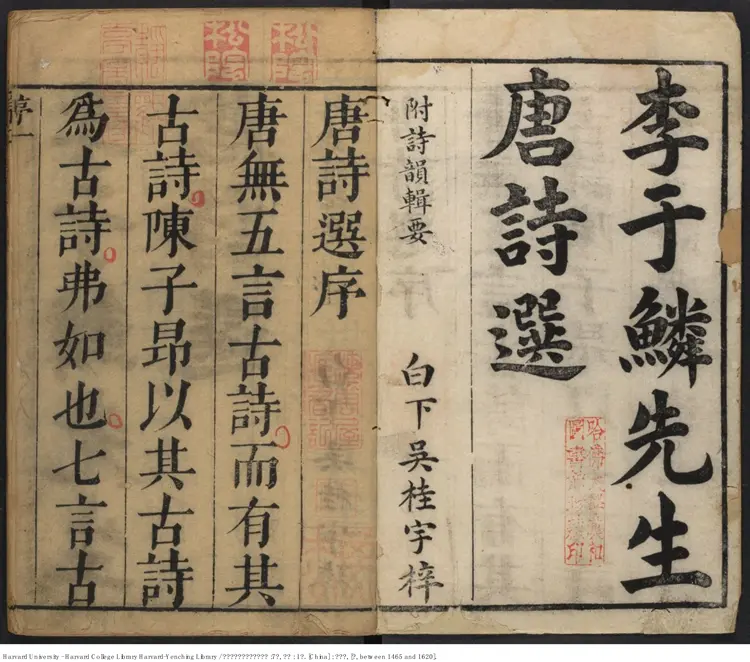 李于鱗先生
唐詩選
附詩韻輯要
白下吳桂宇梓
唐詩選序
唐無五言古詩而有其
古詩陳子昂以其古詩
為古詩弗如也七言古
序一
松陽
松陽
Harvard University - Harvard College Library Harvard-Yenching Library / ???????????? :7?, ?? : 1?. [China] : ???, ?, between 1465 and 1620].